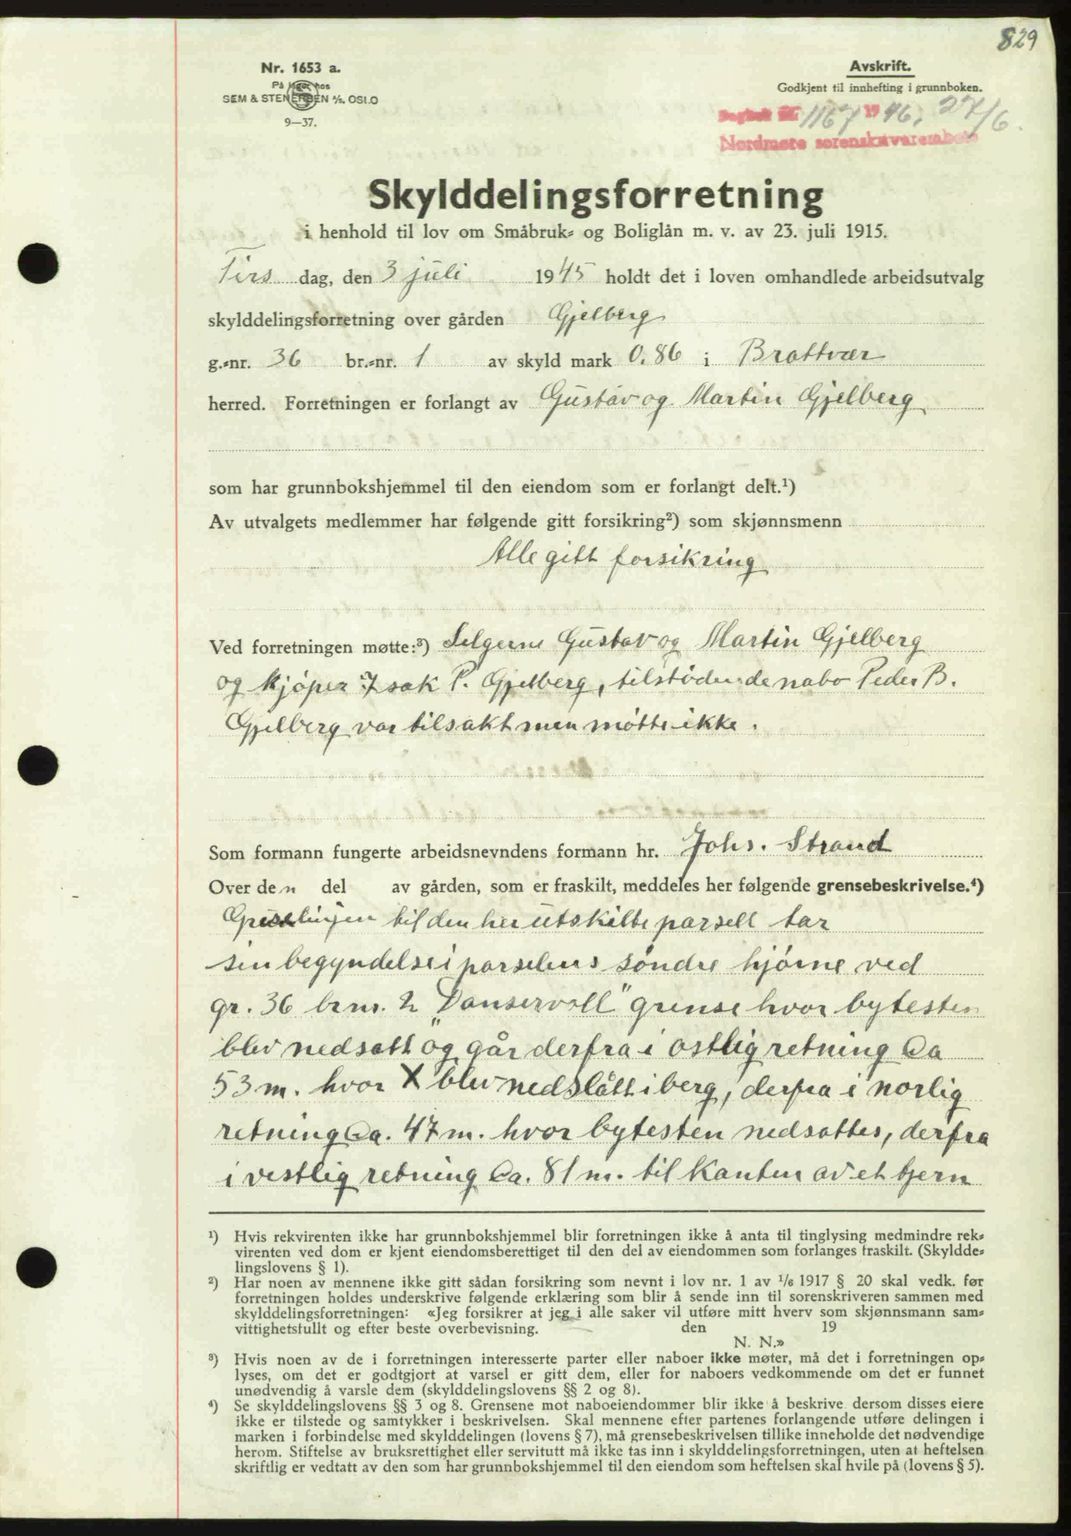 829
Nr. 1653 a.
På lager hos
SEM & STENERSEN A/S. OSLO
9—37.
Avskrift.
Godkjent til innhefting i grunnboken.
Dagbok nr. 1167 1946, 27/6.
Nordmøre sorenskriverembete
Skylddelingsforretning
i henhold til lov om Småbruk= og Boliglån m. v. av 23. juli 1915.
Tirs dag, den 3 juli 1945 holdt det i loven omhandlede arbeidsutvalg
skylddelingsforretning over gården Gjelberg
g.=nr. 36 br.=nr. 1 av skyld mark 0.86 i Brattvær
herred. Forretningen er forlangt av Gustav og Martin Gjelberg
som har grunnbokshjemmel til den eiendom som er forlangt delt.¹)
Av utvalgets medlemmer har følgende gitt forsikring²) som skjønnsmenn
Alle gitt forsikring
Ved forretningen møtte:³) Selgerne Gustav og Martin Gjelberg
og kjøper Isak P. Gjelberg, tilstødende nabo Peder B.
Gjelberg var tilsakt men møtte ikke.
Som formann fungerte arbeidsnevndens formann hr. Johs. Strand
Over den del av gården, som er fraskilt, meddeles her følgende grensebeskrivelse.⁴)
til den her utskilte parsell tar
sin begyndelse i parselens søndre hjørne ved
gr. 36 br nr. 2 "Danservoll" grense hvor bytesten
blev nedsatt og går derfra i østlig retning Ca
53 m. hvor X blev nedslått i berg, derfra i norlig
retning Ca. 47 m. hvor bytesten nedsattes, derfra
i vestlig retning Ca. 81 m. til kanten av et tjern
¹) Hvis rekvirenten ikke har grunnbokshjemmel blir forretningen ikke å anta til tinglysing medmindre rek=
virenten ved dom er kjent eiendomsberettiget til den del av eiendommen som forlanges fraskilt. (Skyldde=
lingslovens § 1).
²) Har noen av mennene ikke gitt sådan forsikring som nevnt i lov nr. 1 av 1/6 1917 § 20 skal vedk. før
forretningen holdes underskrive følgende erklæring som blir å sende inn til sorenskriveren sammen med
skylddelingsforretningen: «Jeg forsikrer at jeg i alle saker vil utføre mitt hverv som skjønnsmann sam=
vittighetsfullt og efter beste overbevisning. den 19
N. N.»
³) Hvis noen av de i forretningen interesserte parter eller naboer ikke møter, må det i forretningen op=
lyses, om det er godtgjort at varsel er gitt dem, eller for naboers vedkommende om det er funnet
unødvendig å varsle dem (skylddelingslovens §§ 2 og 8).
⁴) Se skylddelingslovens §§ 3 og 8. Grensene mot naboeiendommer blir ikke å beskrive dersom disses eiere
ikke er tilstede og samtykker i beskrivelsen. Skal mennene efter partenes forlangende utføre delingen i
marken i forbindelse med skylddelingen (lovens § 7), må grensebeskrivelsen tillike inneholde det nødvendige
herom. Stiftelse av bruksrettighet eller servitutt må ikke tas inn i skylddelingsforretningen, uten at heftelsen
skriftlig er vedtatt av den som har grunnbokshjemmel til den eiendom som heftelsen skal hvile på (lovens § 5).